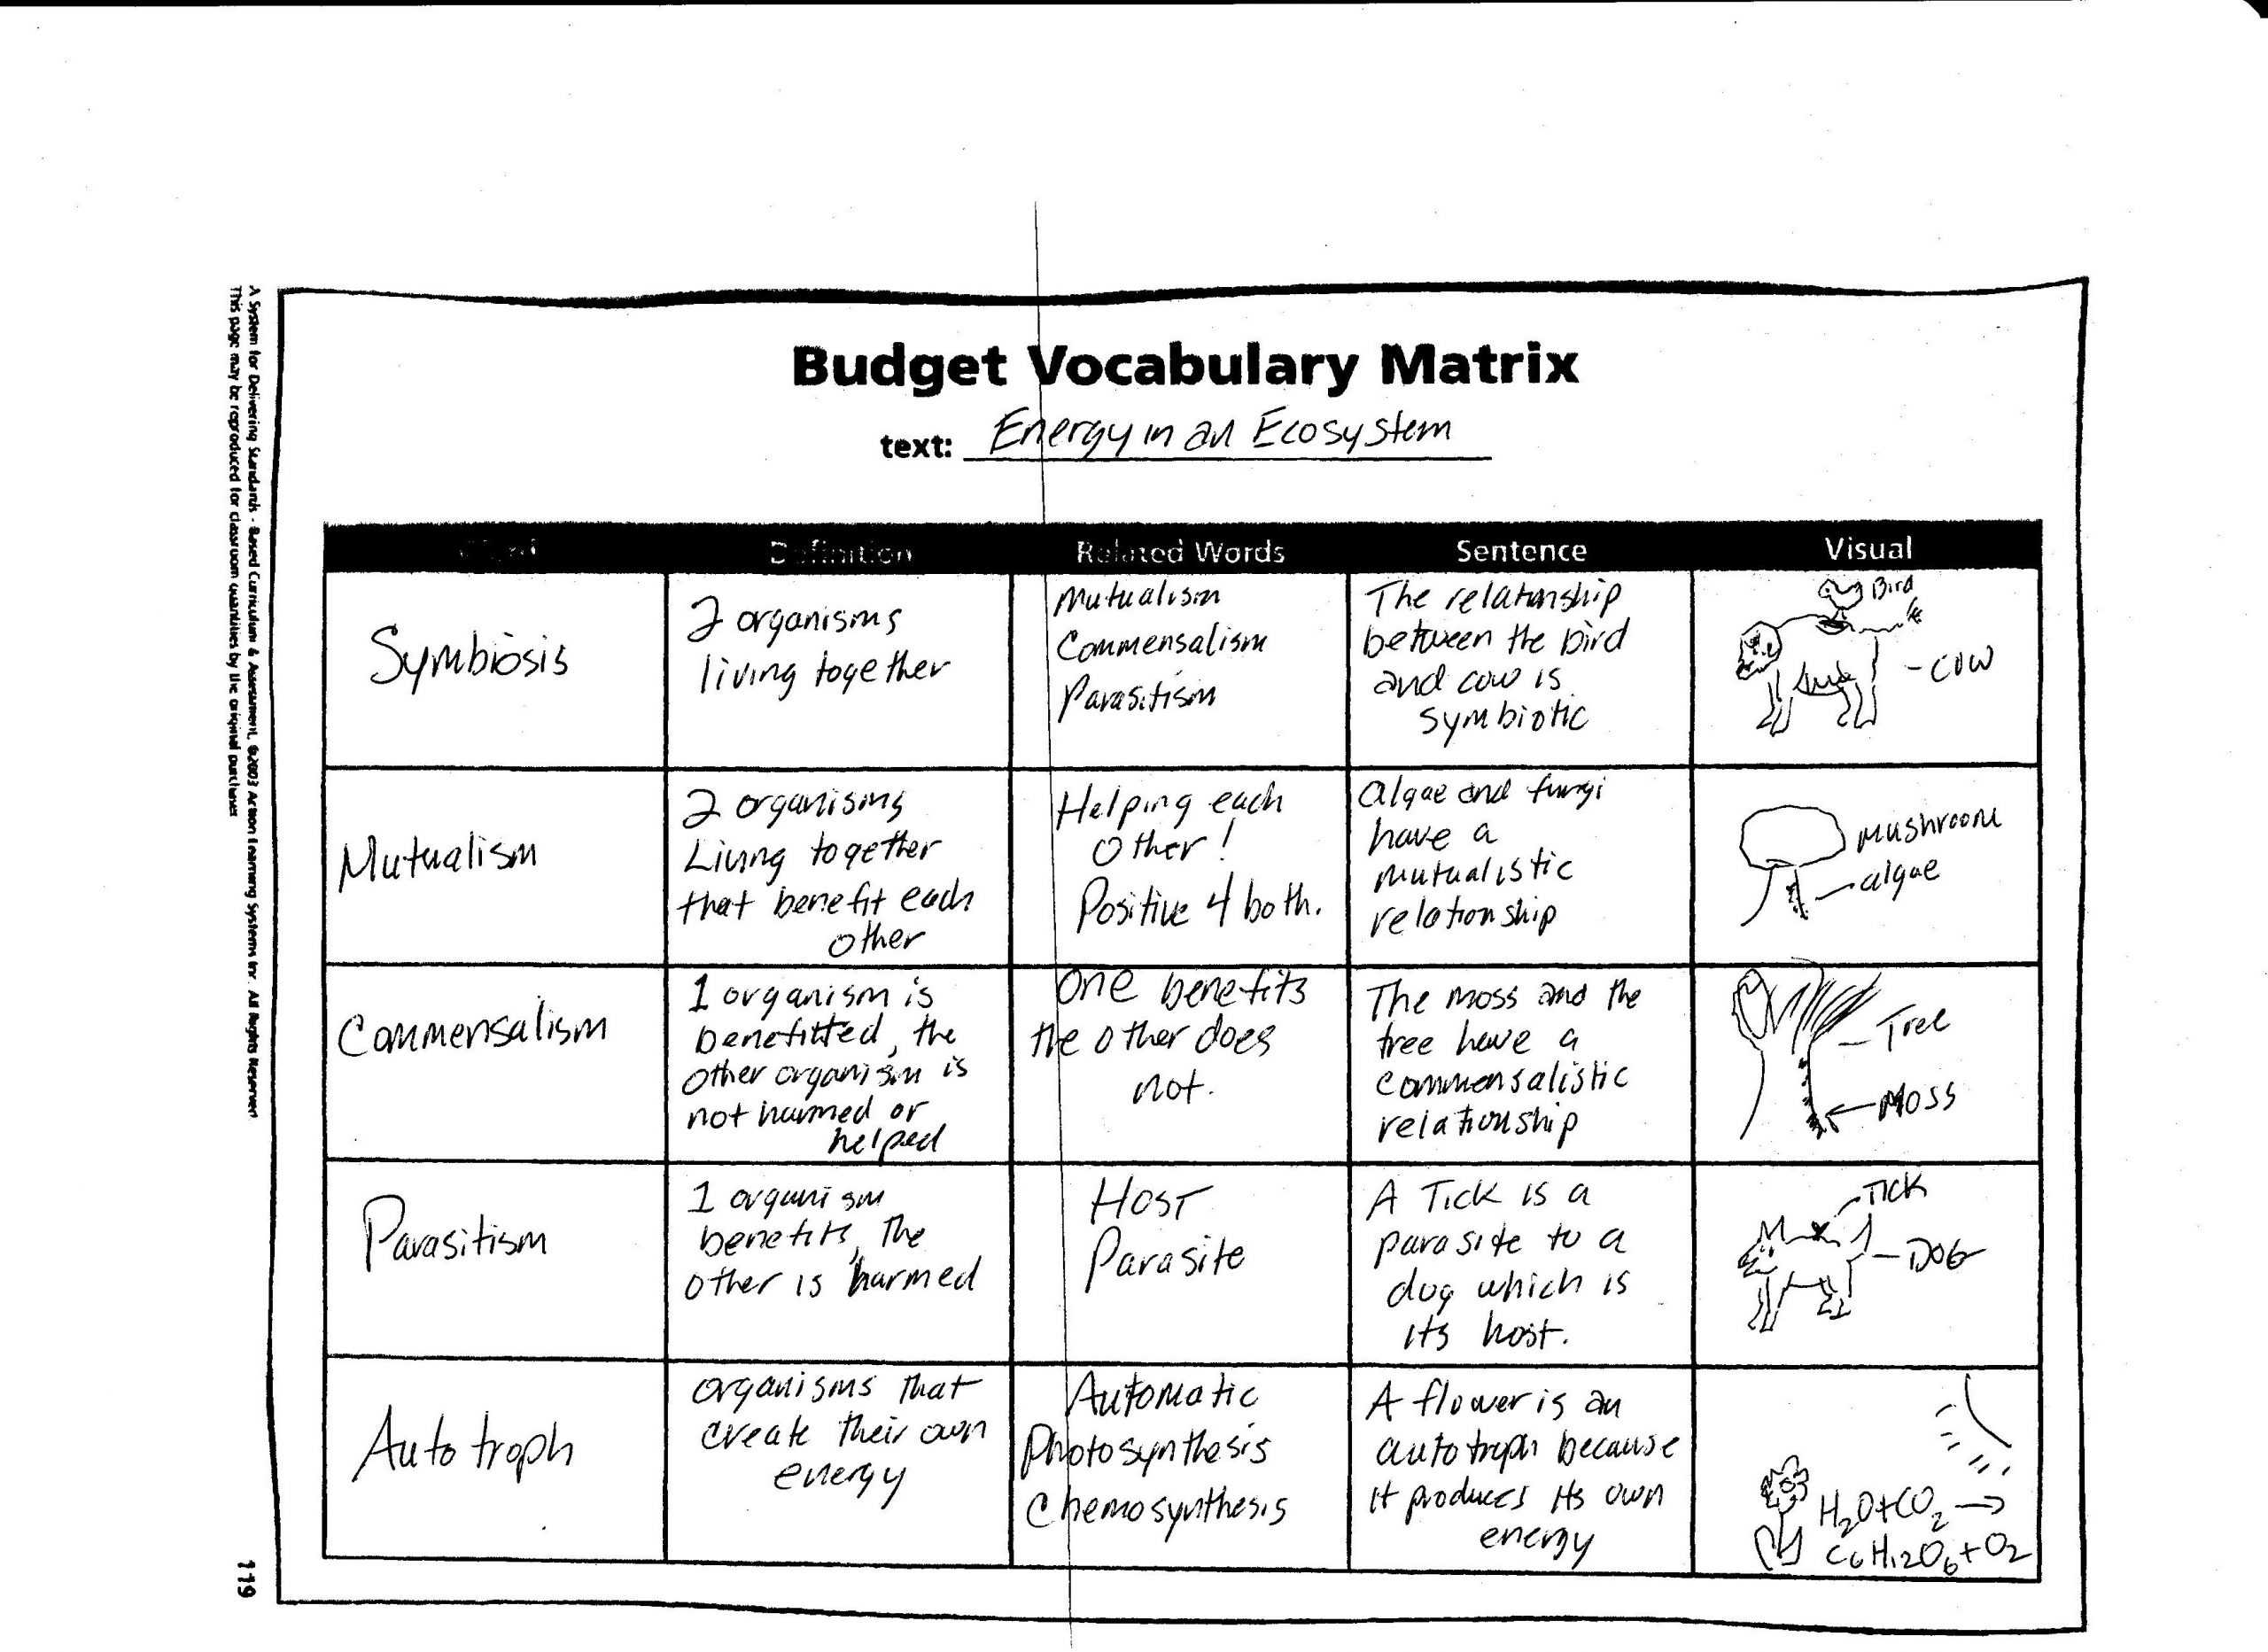 Budget Vocabulary Matrix
text: Energy in an Ecosystem
Word Definition Related Words Sentence Visual
Symbiosis
2 organisms
living together
Mutualism
Commensalism
Parasitism
The relationship
between the bird
and cow is
symbiotic
Bird
- cow
Mutualism
2 organisms
Living together
that benefit each
other
Helping each
other!
Positive 4 both.
algae and fungi
have a
mutualistic
relationship
mushroom
algae
Commensalism
1 organism is
benefitted, the
other organism is
not harmed or
helped
One benefits
the other does
not.
The moss and the
tree have a
commensalistic
relationship
Tree
Moss
Parasitism
1 organism
benefits, The
other is harmed
Host
Parasite
A Tick is a
parasite to a
dog which is
its host.
Tick
DOG
Autotroph
organisms that
create their own
energy
Automatic
Photosynthesis
Chemosynthesis
A flower is an
autotroph because
it produces its own
energy
H2O+CO2 →
C6H12O6+O2
A System for Delivering Standards - Based Curriculum & Assessment, ©2003 Action Learning Systems Inc. All Rights Reserved
This page may be reproduced for classroom quantities by the original purchaser
119